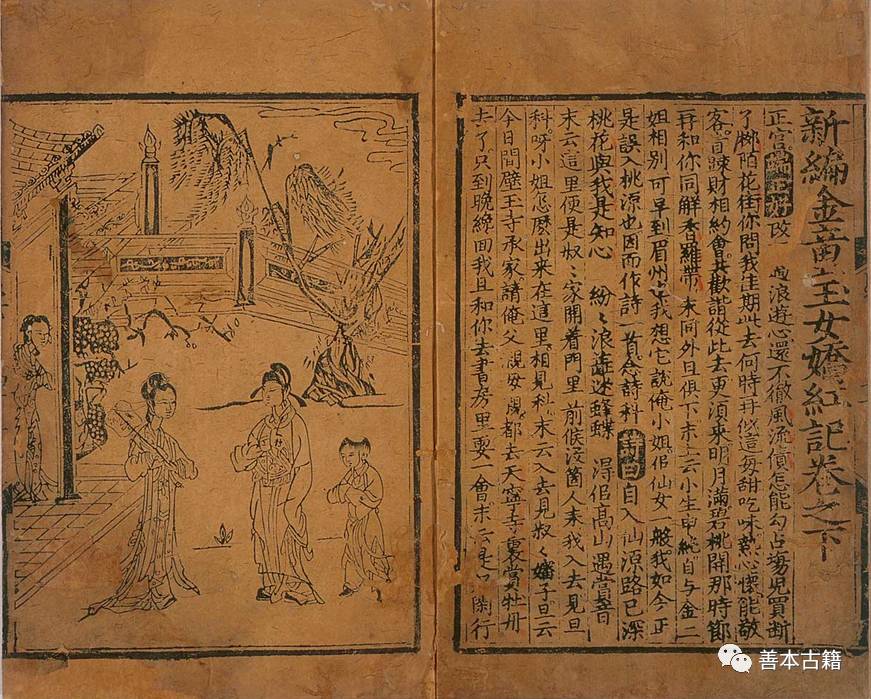 新編金童玉女嬌紅記卷之下
正宮端正好 浪遊心還不徹風流債怎能勾占場兒買斷
了柳陌花街你問我佳期此去何時再似這每甜吃味熟心懷能敬
客肯踈財相約會共歡諧從此去更湏来明月滿碧桃開那時節
再和你同解香羅帶 末同外旦俱下末上云小生申純自与金二
姐相别可早到眉州来我想它說俺小姐佀仙女一般我如今正
是誤入桃源也因而作詩一首念詩科 詩曰 自入仙源路已深
桃花與我是知心 紛〻浪蘂迷蜂蝶 淂佀高山遇賞音
末云這里便是叔〻家開着門里前候没箇人来我入去見旦
科呀小姐怎麽出来在這里相見科末云入去見叔〻嬸子旦云
今日間壁王寺承家請俺父親母親都去天寧寺裏賞牡丹
去了只到晚纔回我且和你去書房里耍一會末云是 行
善本古籍